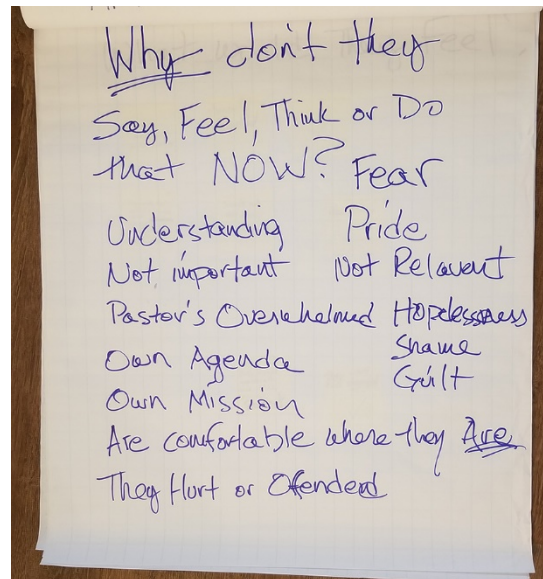 Why don't they
Say, Feel, Think or Do
that NOW? Fear
Understanding Pride
Not important Not Relavent
Pastor's Overwhelmed Hopelessness
Own Agenda Shame
Guilt
Own Mission
Are comfortable where they Are
They Hurt or Ofended